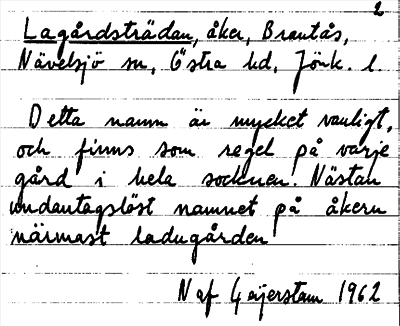 2
Lagårdsträdan, åker, Brantås,
Nävelsjö sn, Östra hd, Jönk. l.
Detta namn är mycket vanligt,
och finns som regel på varje
gård i hela socknen. Nästan
undantagslöst namnet på åkern
närmast ladugården
N af Geijerstam 1962